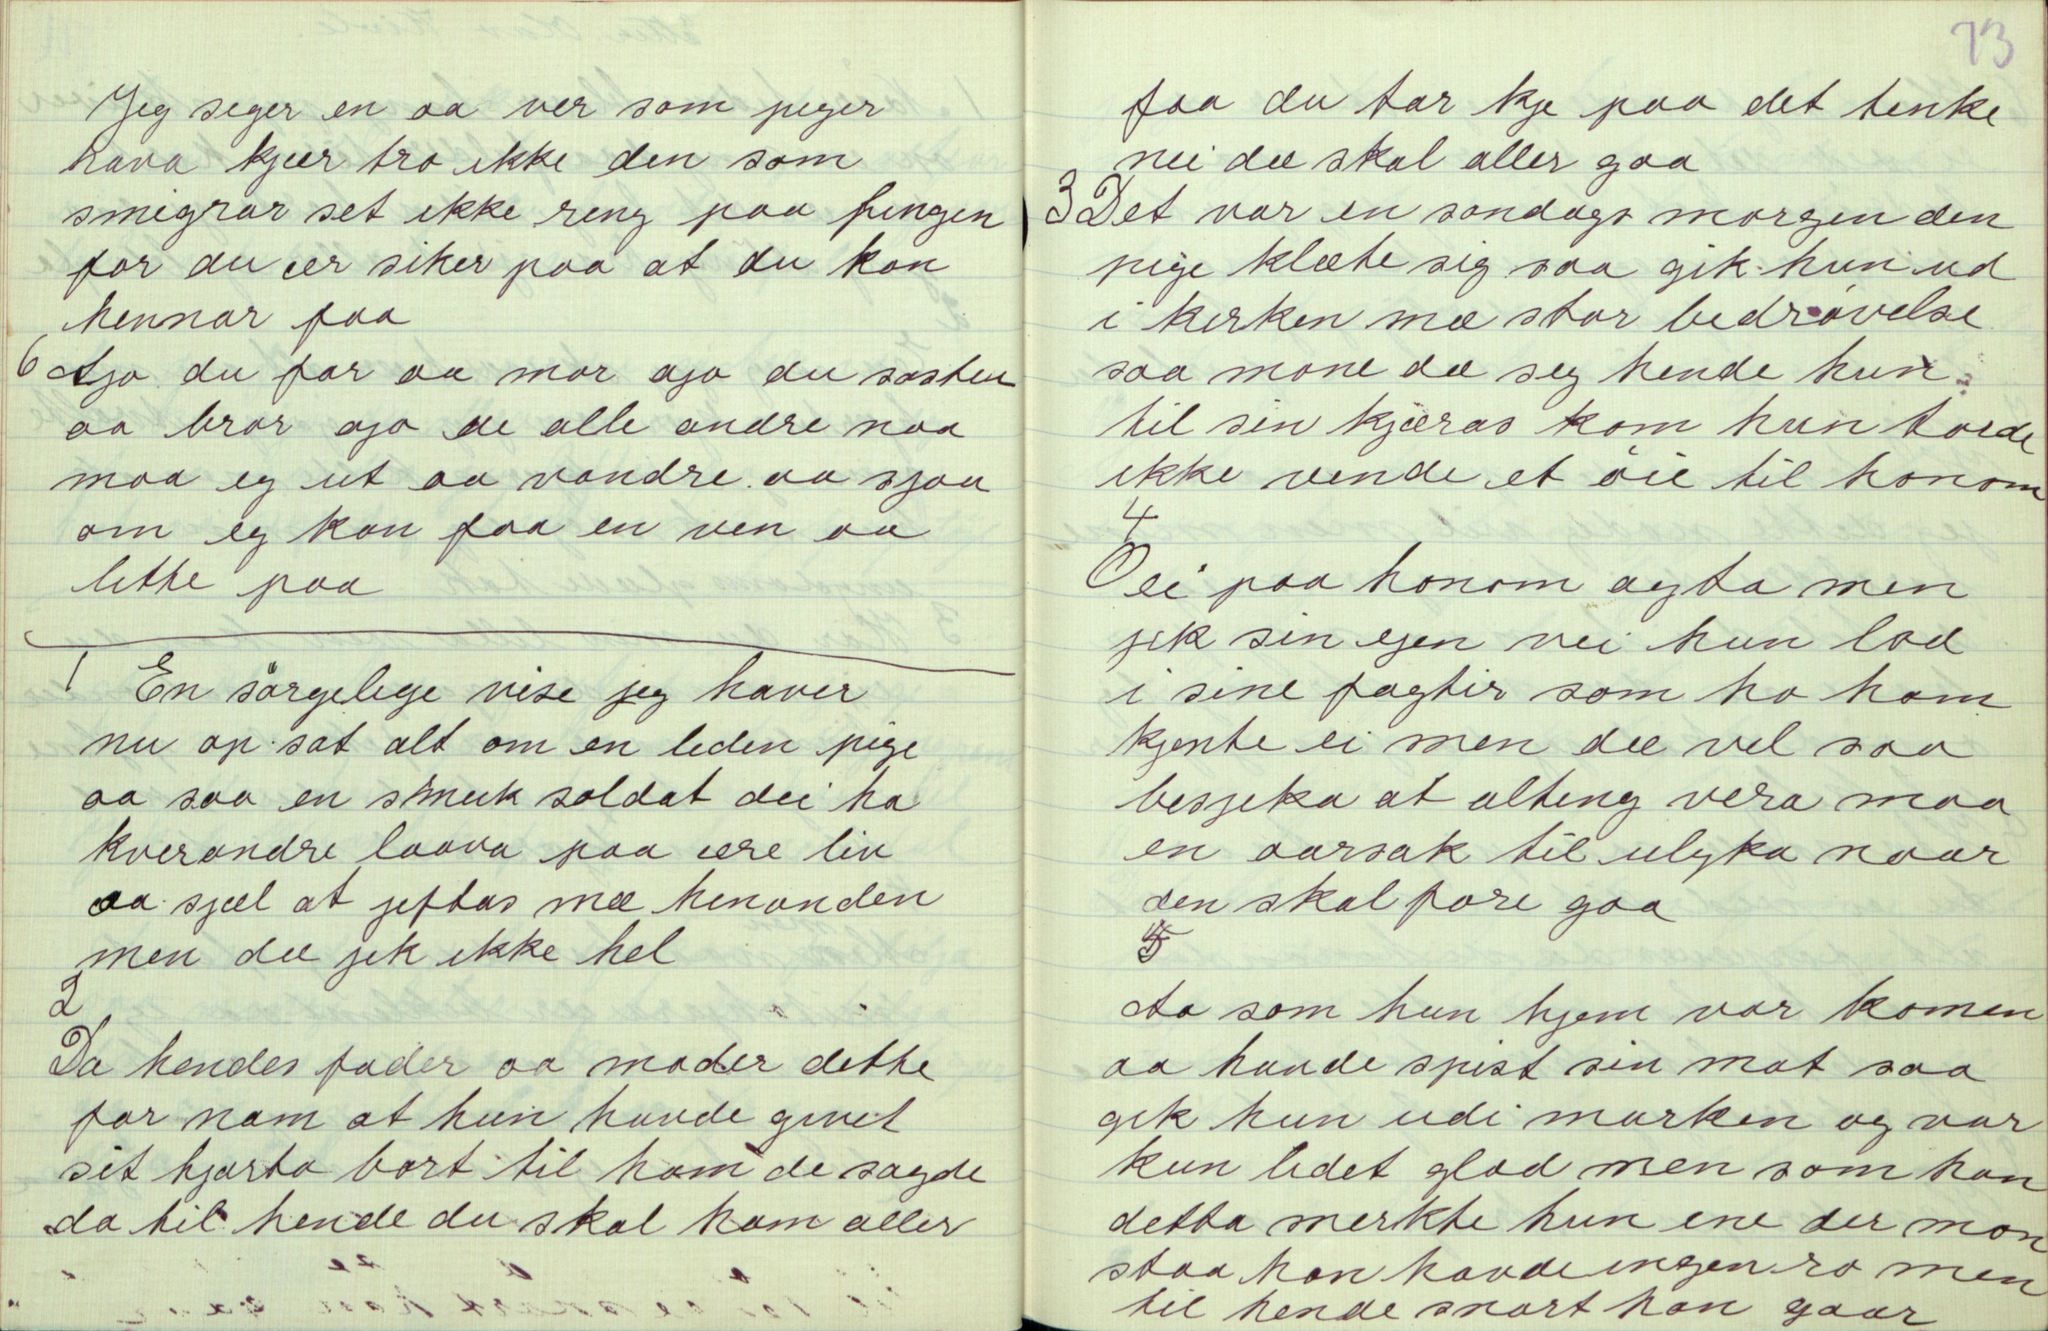 Jeg seger en aa ver som peger
hava kjær tro ikke den som
smigrar set ikke reng paa fingen
for du ær siker paa at du kan
hennar faa
6 Ajo du far aa mor ajo du sosteu
aa bror ajo de alle andre naa
maa eg ut aa vandre aa sjaa
om eg kan faa en ven aa
lette paa
1 En sörgelige vise jeg haver
nu op sat alt om en leden pige
aa saa en smuk soldat dei ha
kverandre laava paa ære liv
aa sjæl at jeftas mæ henanden
men dæ jek ikke hel
2
Da hendes fader aa moder dette
for nam at hun havde givet
sit hjarta bort til ham de sagde
da til hende du skal ham aller
73
faa du tar kje paa det tenke
nei dæ skal aller gaa
3 Det var en sondags morgen den
pige klæte sig saa gik hun ud
i kirken mæ stor bedrøvelse
saa mone dæ seg hende hun
til sin kjæras kom hun torde
ikke vende et öie til honom
4
O ei paa honom agta men
jek sin egen vei hun lod
i sine fagtir som ho ham
kjente ei men dæ vel saa
besjeka at alting vera maa
en aarsak til ulyka naar
den skal fore gaa
5
Aa som hun hjem var komen
aa havde spist sin mat saa
gik hun udi marken og var
kun lidet glad men som han
detta merkte hun ene der mon
staa han havde ingen ro men
til hende snart han gaar